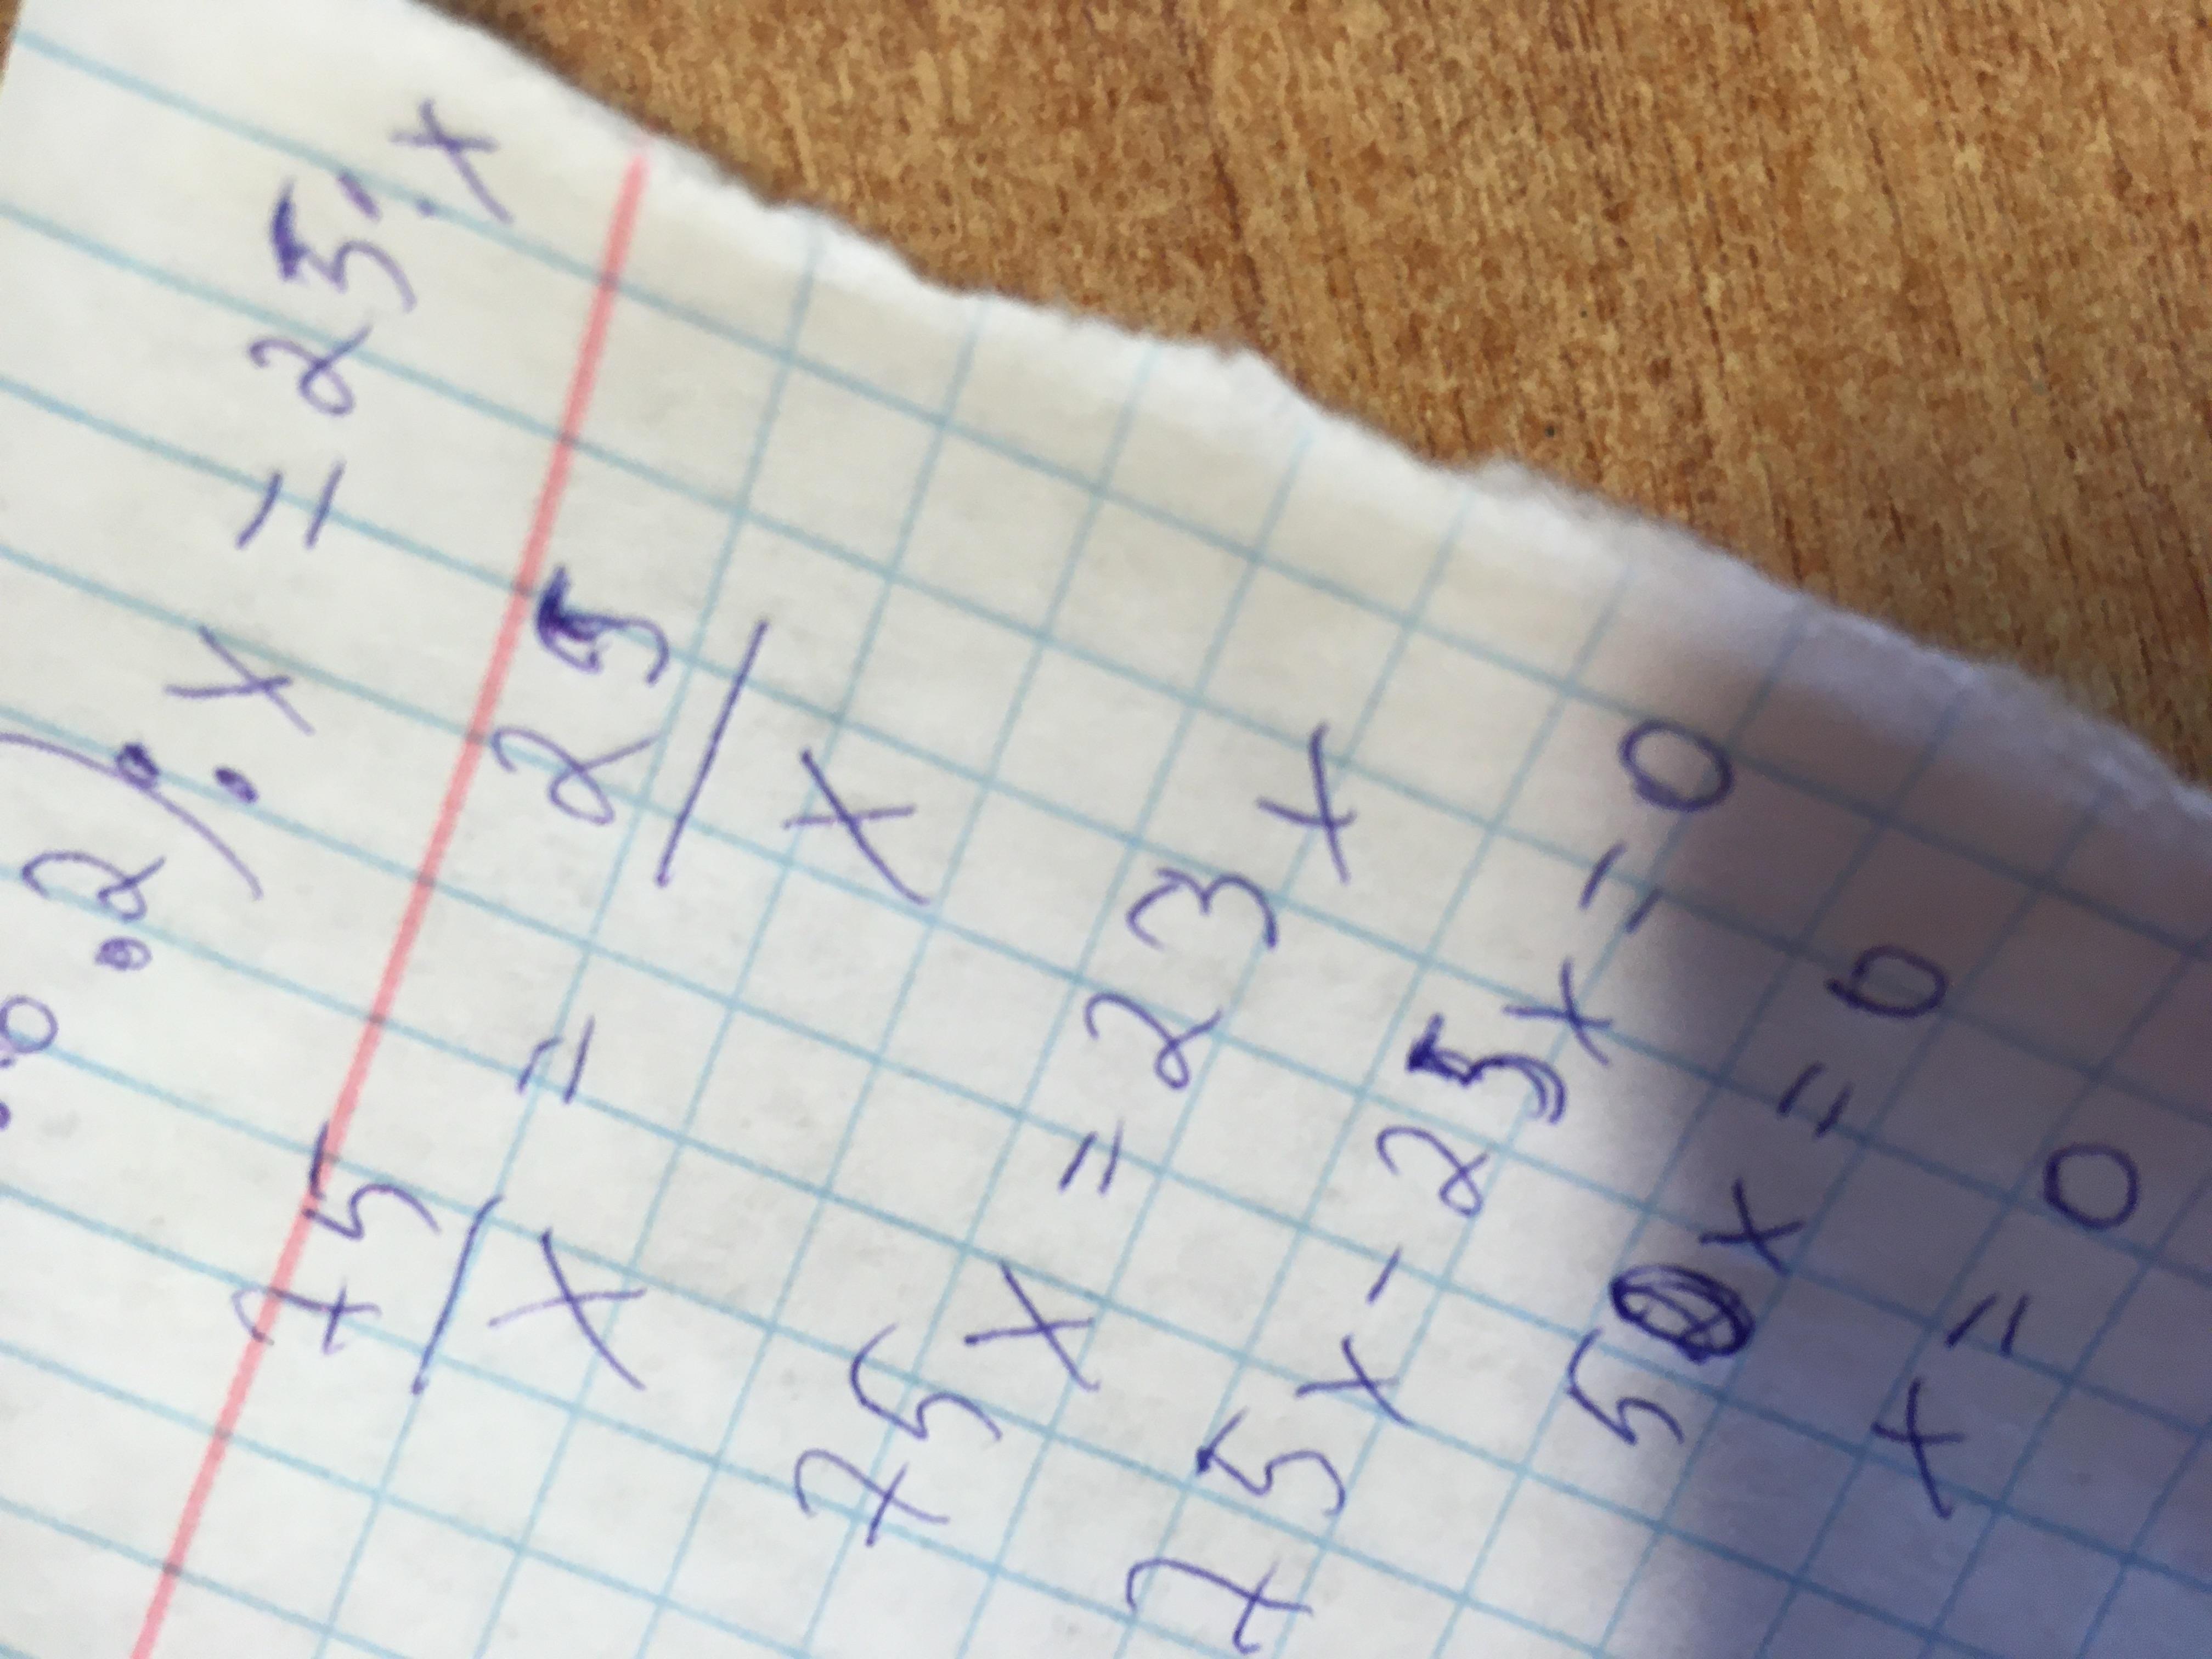 0:2):x = 25:x
75/x = 25/x
75x = 23x
75x - 25x = 0
50x = 0
x = 0